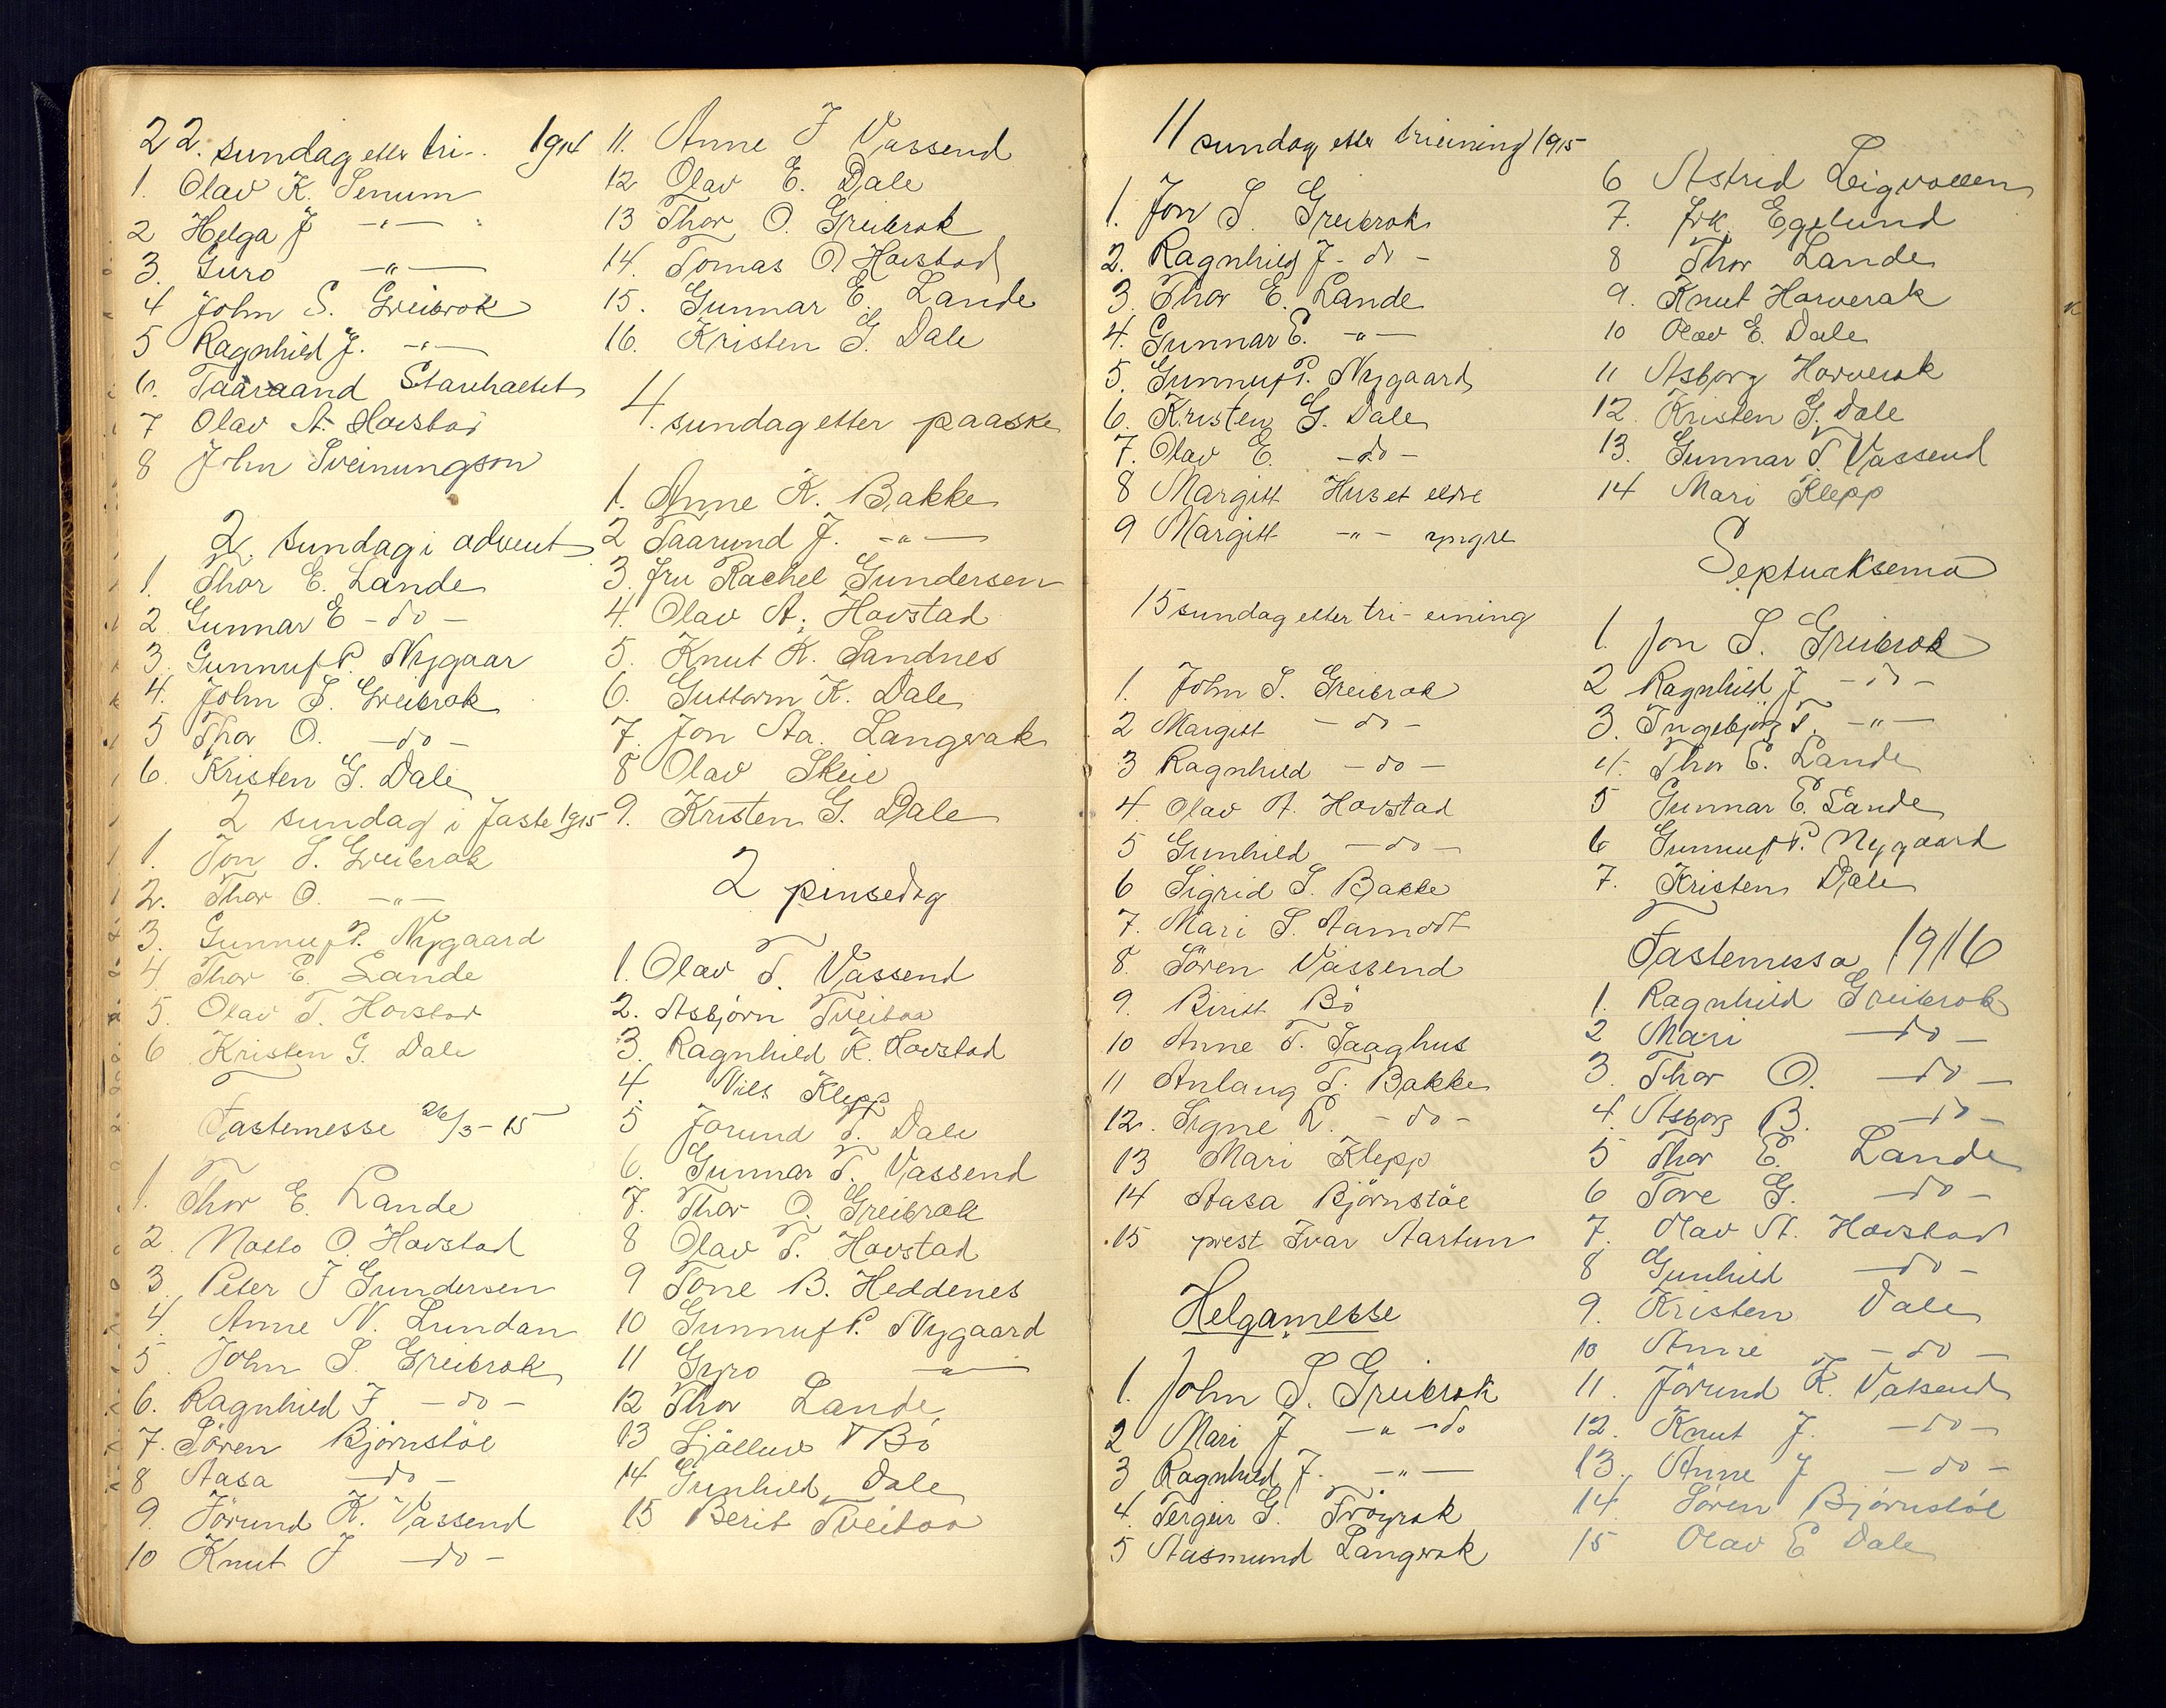 22. sundag etter tri-. 1914
1. Olav K. Senum
2 Helga J —"—
3. Guro —"—
4 John S. Greibrok
5 Ragnhild J. —"—
6. Taaraand Staurhaltet
7 Olav A. Hovstad
8 John Sveinungson
2. sundag i advent
1. Thor E. Lande
2 Gunnar E - do -
3. Gunnuf P. Nygaar
4. John S. Greibrok
5 Thor O. - do -
6. Kristen G. Dale
2 sundag i faste 1915
1. Jon S. Greibrok
2. Thor O. —"—
3. Gunnuf P. Nygaard
4 Thor E. Lande
5. Olav T. Hovstad
6 Kristen G. Dale
Fastemesse 26/3-15
1. Thor E. Lande
2. Notto O. Hovstad
3 Peter J Gundersen
4. Anne N. Lundan
5. John S. Greibrok
6. Ragnhild J - do -
7. Sören Björnstöl
8 Aasa — do -
9. Jörund K. Vassend
10 Knut J — do -
11. Anne J Vassend
12 Olav E. Dale
13 Thor O. Greibrok
14. Tomas O Hovstad
15. Gunnar E. Lande
16. Kristen G. Dale
4. sundag etter paaske
1. Anne K. Bakke
2 Taarund J. -"—
3. fru Rachel Gundersen
4. Olav A. Hovstad
5. Knut K. Sandnes
6. Guttorm K. Dale
7. Jon Aa. Langerak
8 Olav Skeie
9. Kristen G. Dale
2 pinsedag
1. Olav T. Vassend
2. Asbjörn Tveitaa
3. Ragnhild K. Hovstad
4. Nils Klepp
5 Jorund T. Dale
6. Gunnar T. Vassend
7. Thor O. Greibrok
8 Olav T. Hovstad
9 Tone B. Heddenes
10 Gunnuf P. Nygaard
11 Gyro —"—
12 Thor Lande
13 Bö
14 Gunhild Dale
15 Berit Tveitaa
11 sundag etter trieining 1915
1. Jon S. Greibrok
2. Ragnhild J - do -
3. Thor E. Lande
4. Gunnar E. -"—
5. Gunnuf P. Nygaard
6. Kristen G. Dale
7. Olav E. - do -
8 Margitt Huset eldre
9 Margitt -"- yngre
15 sundag etter tri-eining
1. John S. Greibrok
2 Margitt - do -
3 Ragnhild - do -
4. Olav A. Hovstad
5 Gunhild - do -
6 Sigrid S. Bakke
7. Mari S. Aamodt
8. Sören Vassend
9. Biritt Bö
10 Anne T. Haaghus
11 Anlaug T. Bakke
12. Signe L. - do -
13 Mari Klepp
14 Aasa Björnstöl
15 prest Ivar Aartun
Helgamesse
1. John S. Greibrok
2 Mari J -"- do
3 Ragnhild J. -"—
4. Tergeir G. Fröyrak
5 Aasmund Langerak
6 Astrid Leigvollen
7. frk. Egelund
8 Thor Lande
9. Knut Horverak
10 Olav E. Dale
11 Asborg Horverak
12. Kristen G. Dale
13. Gunnar T. Vassend
14 Mari Klepp
Septuaksema
1. Jon S. Greibrok
2 Ragnhild J - do -
3. Ingebjörg T. -"—
4. Thor E. Lande
5 Gunnar E. Lande
6 Gunnuf P. Nygaard
7. Kristen Dale
Fastemessa 1916
1. Ragnhild Greibrok
2 Mari — do —
3. Thor O. — do —
4. Asborg B. — do -
5 Thor E. Lande
6 Tore G. — do -
7. Olav A. Hovstad
8 Gunhild — do -
9. Kristen Dale
10 Anne - do —
11. Jörund K. Vassend
12. Knut J. — do —
13. Anne J - do -
14. Sören Björnstöl
15 Olav E Dale